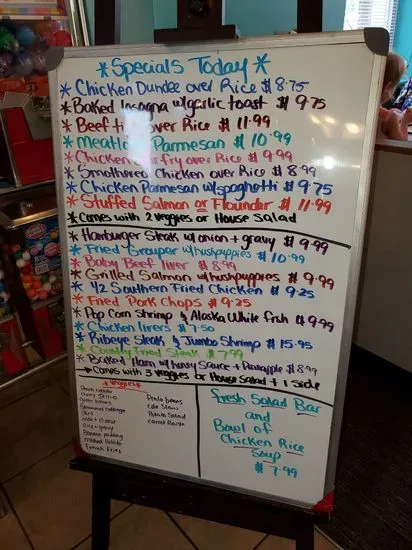 * Specials Today *
* Chicken Dundee over Rice $8.75
* Baked lasagna w/garlic toast $9.75
* Beef over Rice $11.99
* Meatloaf Parmesan $10.99
* Chicken fry over Rice $9.99
* Smothered Chicken over Rice $8.99
* Chicken Parmesan w/spaghetti $9.75
* Stuffed Salmon or Flounder $11.99
* Comes with 2 veggies or House Salad
* Hamburger Steak w/onion + gravy $9.99
* Fried Grouper w/hushpuppies $10.99
* Baby Beef liver $8.99
* Grilled Salmon w/hushpuppies $9.99
* 1/2 Southern Fried Chicken $9.25
* Fried Pork Chops $9.25
* Pop Corn Shrimp & Alaska White fish $9.99
* Chicken livers $7.50
* Ribeye Steak & Jumbo Shrimp $15.95
* Country Fried Steak $7.99
* Baked Ham w/honey Sauce + Pineapple $8.99
* Comes with 3 veggies or House Salad + 1 side
* Veggies *
cherry Jello
green beans
Steamed cabbage
Okra
Rice + gravy
Banana pudding
mashed Potato
French Fries
Pinto beans
Cole Slaw
Potato Salad
carrot Raisin
Fresh Salad Bar
and
Bowl of
Chicken Rice
Soup
$7.99